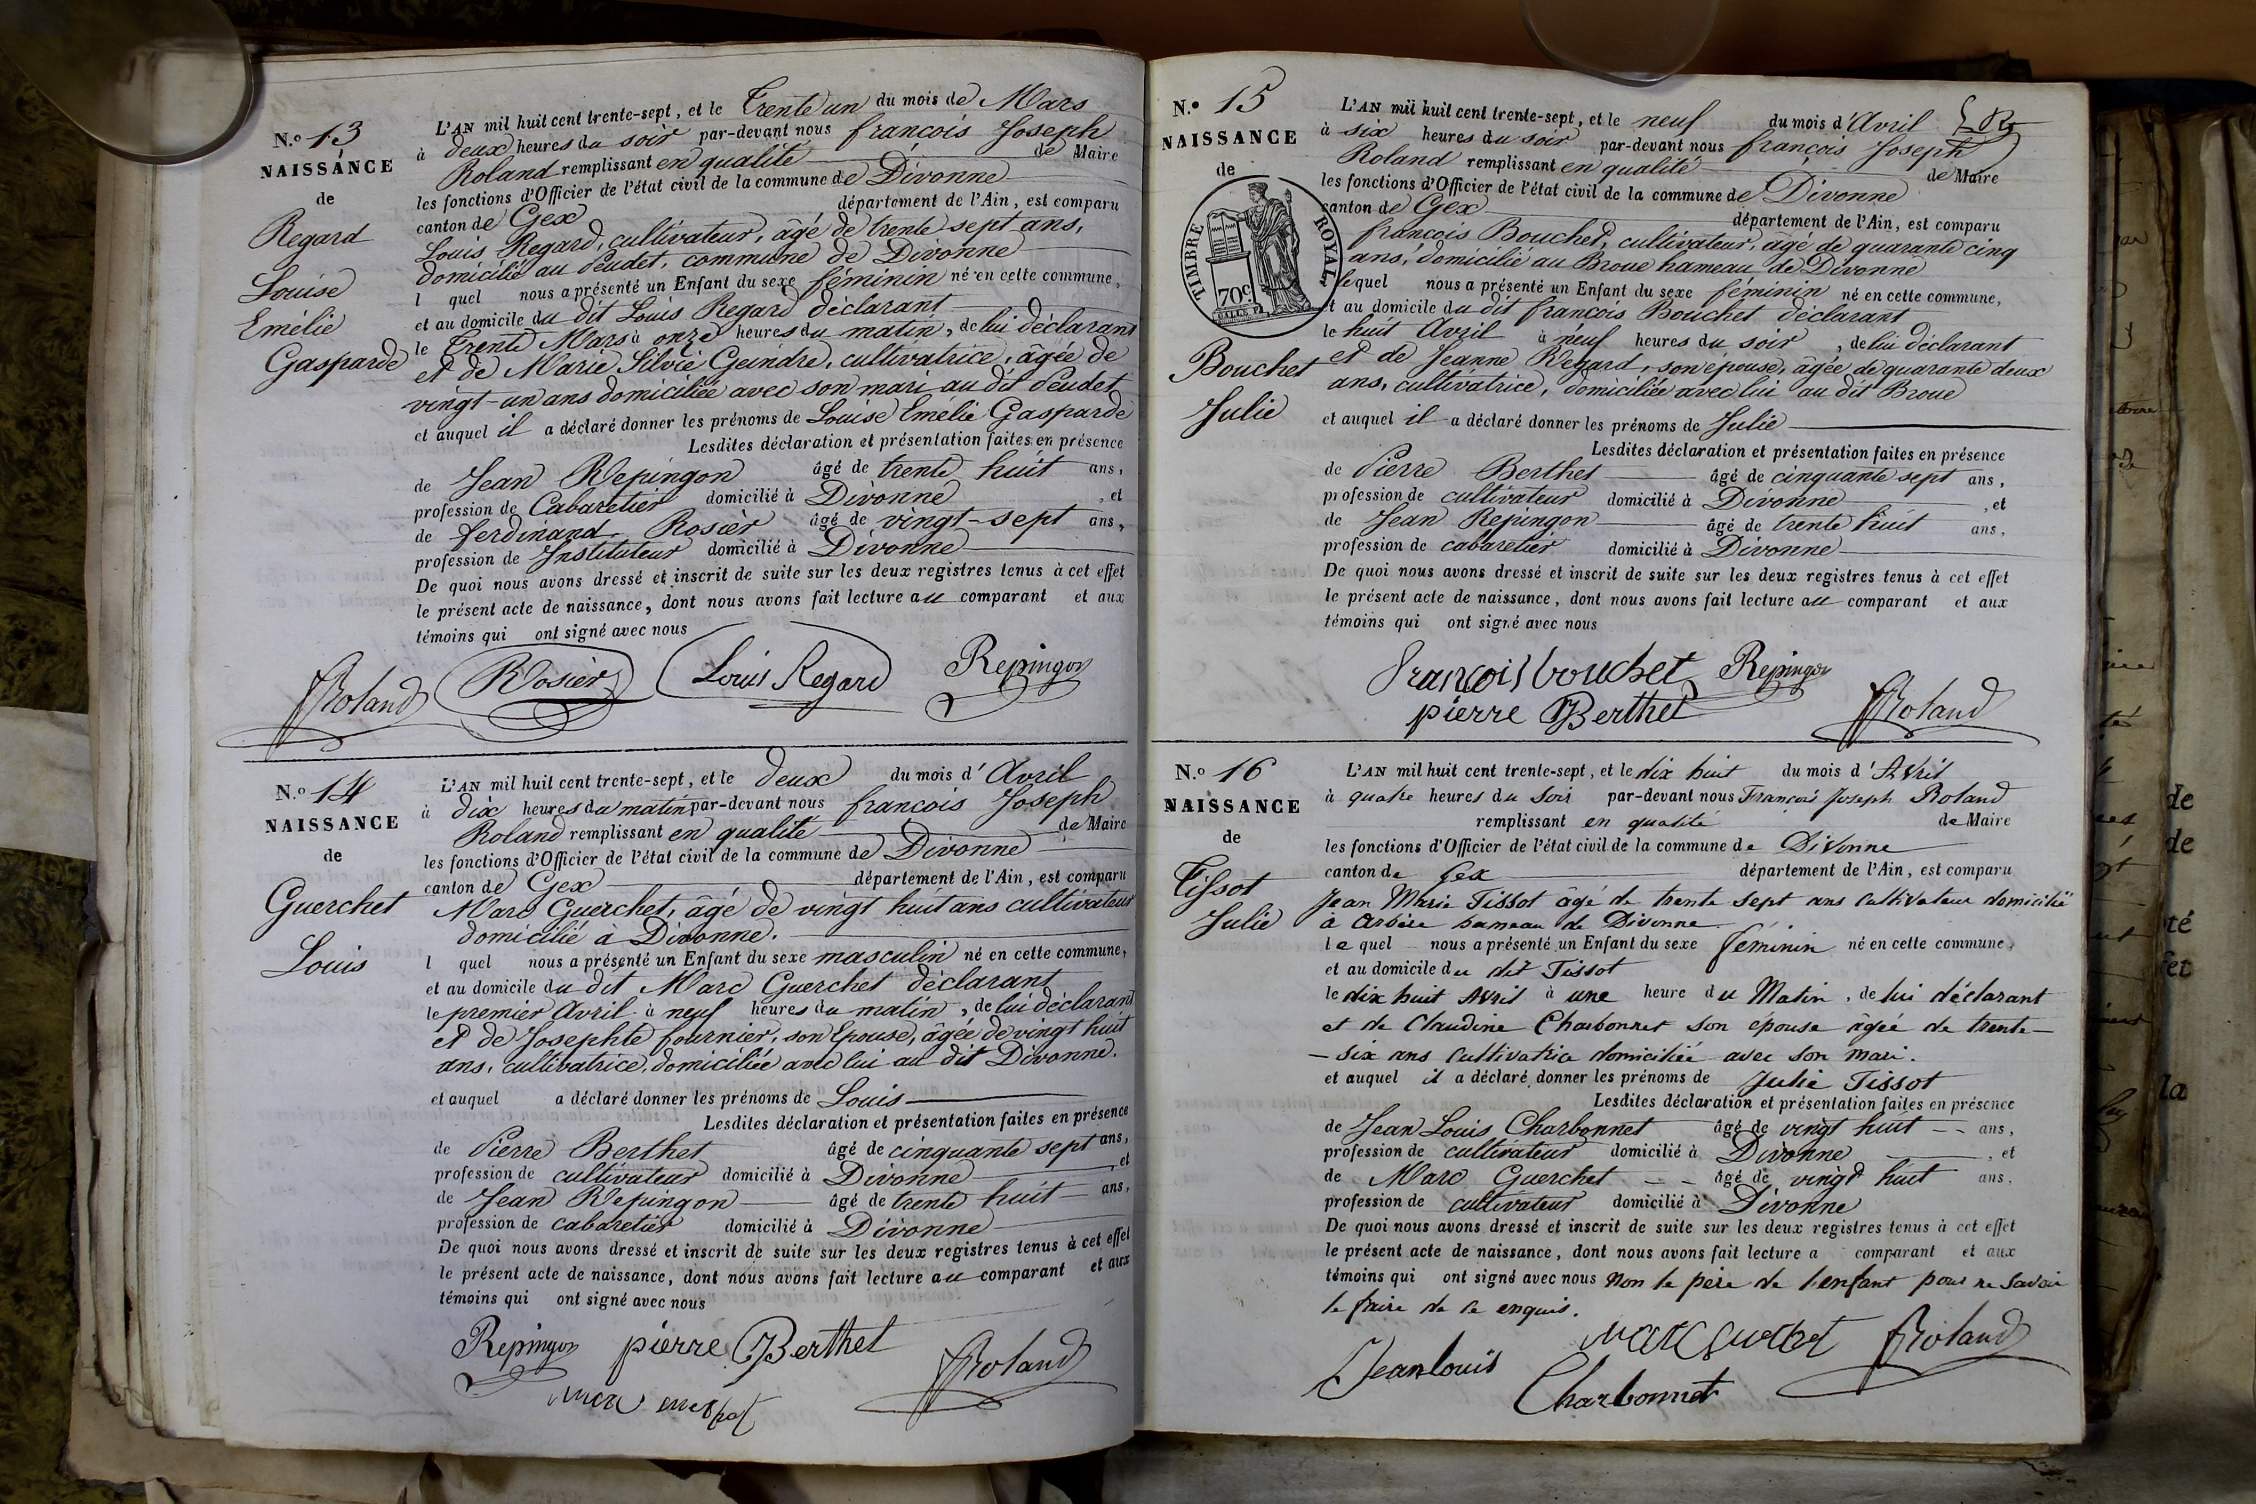 N.o 13
NAISSANCE
de
Regard
Louise
Emélie
Gasparde
L'AN mil huit cent trente-sept, et le Trente un du mois de Mars
à deux heures du soir par-devant nous françois Joseph
Roland remplissant en qualité de Maire
les fonctions d'Officier de l'état civil de la commune de Divonne
canton de Gex département de l'Ain, est comparu
Louis Regard, cultivateur, âgé de trente sept ans,
domicilié au commune de Divonne
l quel nous a présenté un Enfant du sexe féminin né en cette commune,
et au domicile du dit Louis Regard déclarant
le Trente Mars à onze heures du matin, de lui déclarant
et de Marie Silvie Geindre, cultivatrice, âgée de
vingt-un ans domiciliée avec son mari au dit
et auquel il a déclaré donner les prénoms de Louise Emélie Gasparde
Lesdites déclaration et présentation faites en présence
de Jean Repingon âgé de trente huit ans,
profession de Cabaretier domicilié à Divonne, et
de ferdinand Rosier âgé de vingt-sept ans,
profession de Instituteur domicilié à Divonne
De quoi nous avons dressé et inscrit de suite sur les deux registres tenus à cet effet
le présent acte de naissance, dont nous avons fait lecture au comparant et aux
témoins qui ont signé avec nous
Roland Rosier Louis Regard Repingon
N.o 14
NAISSANCE
de
Guerchet
Louis
L'AN mil huit cent trente-sept, et le deux du mois d'Avril
à dix heures du matin par-devant nous françois Joseph
Roland remplissant en qualité de Maire
les fonctions d'Officier de l'état civil de la commune de Divonne
canton de Gex département de l'Ain, est comparu
Marc Guerchet, âgé de vingt huit ans cultivateur
domicilié à Divonne.
l quel nous a présenté un Enfant du sexe masculin né en cette commune,
et au domicile du dit Marc Guerchet déclarant
le premier Avril à neuf heures du matin, de lui déclarant
et de Josephte fournier, son Epouse, âgée de vingt huit
ans, cultivatrice, domiciliée avec lui au dit Divonne.
et auquel a déclaré donner les prénoms de Louis
Lesdites déclaration et présentation faites en présence
de Pierre Berthet âgé de cinquante sept ans,
profession de cultivateur domicilié à Divonne, et
de Jean Repingon âgé de trente huit ans,
profession de cabaretier domicilié à Divonne
De quoi nous avons dressé et inscrit de suite sur les deux registres tenus à cet effet
le présent acte de naissance, dont nous avons fait lecture au comparant et aux
témoins qui ont signé avec nous
Repingon pierre Berthet Roland
N.o 15
NAISSANCE
de
TIMBRE ROYAL
70c.
Bouchet
Julie
L'AN mil huit cent trente-sept, et le neuf du mois d'Avril
à six heures du soir par-devant nous françois Joseph
Roland remplissant en qualité de Maire
les fonctions d'Officier de l'état civil de la commune de Divonne
canton de Gex département de l'Ain, est comparu
françois Bouchet, cultivateur, âgé de quarante cinq
ans, domicilié au Broue hameau de Divonne
lequel nous a présenté un Enfant du sexe féminin né en cette commune,
et au domicile du dit françois Bouchet déclarant
le huit Avril à neuf heures du soir, de lui déclarant
et de Jeanne Regard, son épouse, âgée de quarante deux
ans, cultivatrice, domiciliée avec lui au dit Broue
et auquel il a déclaré donner les prénoms de Julie
Lesdites déclaration et présentation faites en présence
de Pierre Berthet âgé de cinquante sept ans,
profession de cultivateur domicilié à Divonne, et
de Jean Repingon âgé de trente huit ans,
profession de cabaretier domicilié à Divonne
De quoi nous avons dressé et inscrit de suite sur les deux registres tenus à cet effet
le présent acte de naissance, dont nous avons fait lecture au comparant et aux
témoins qui ont signé avec nous
françois bouchet Repingon
pierre Berthet Roland
N.o 16
NAISSANCE
de
Tissot
Julie
L'AN mil huit cent trente-sept, et le dix huit du mois d'Avril
à quatre heures du Soir par-devant nous François Joseph Roland
remplissant en qualité de Maire
les fonctions d'Officier de l'état civil de la commune de Divonne
canton de Gex département de l'Ain, est comparu
Jean Marie Tissot âgé de trente sept ans Cultivateur domicilié
à Arbère hameau de Divonne
le quel nous a présenté un Enfant du sexe féminin né en cette commune,
et au domicile du dit Tissot
le dix huit Avril à une heure du Matin, de lui déclarant
et de Claudine Charbonnet son épouse âgée de trente-
- six ans Cultivatrice domiciliée avec son mari.
et auquel il a déclaré donner les prénoms de Julie Tissot
Lesdites déclaration et présentation faites en présence
de Jean Louis Charbonnet âgé de vingt huit -- ans,
profession de cultivateur domicilié à Divonne, et
de Marc Guerchet -- âgé de vingt huit ans,
profession de cultivateur domicilié à Divonne
De quoi nous avons dressé et inscrit de suite sur les deux registres tenus à cet effet
le présent acte de naissance, dont nous avons fait lecture a comparant et aux
témoins qui ont signé avec nous non le père de l'enfant pour ne Savoir
le faire de ce enquis.
Jean louis marc guerchet Roland
Charbonnet